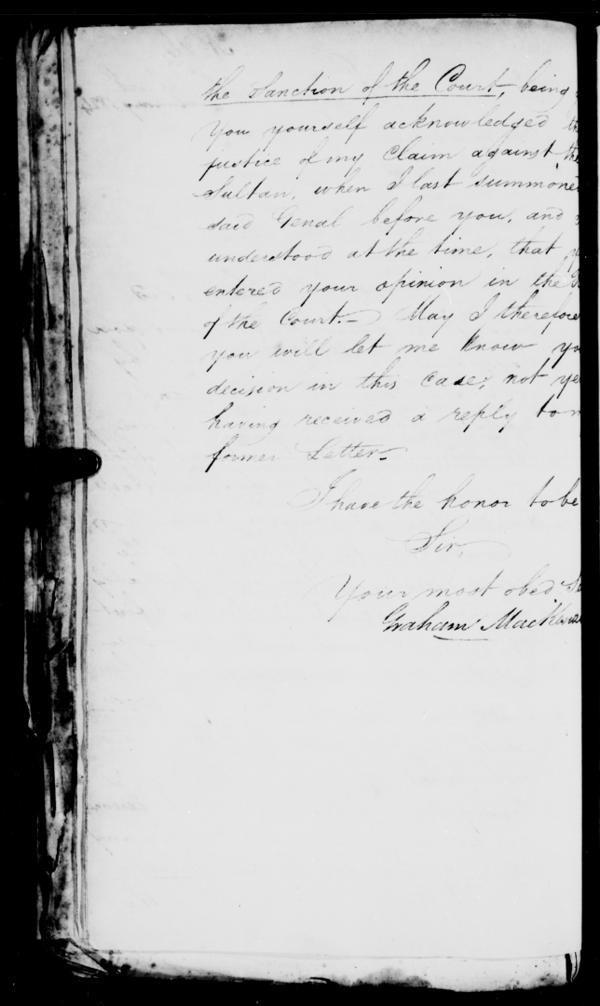 the Sanction of the Court, being
You yourself acknowledged
justice of my Claim against the
Sultan, when I last summone
said Genal before you, and
understood at the time, that
entered your opinion in the
of the Court. May I therefore
you will let me know yo
decision in this Case, not ye
having received a reply to
former Letter
I have the honor to be
Sir,
Your most obed
Graham Mack